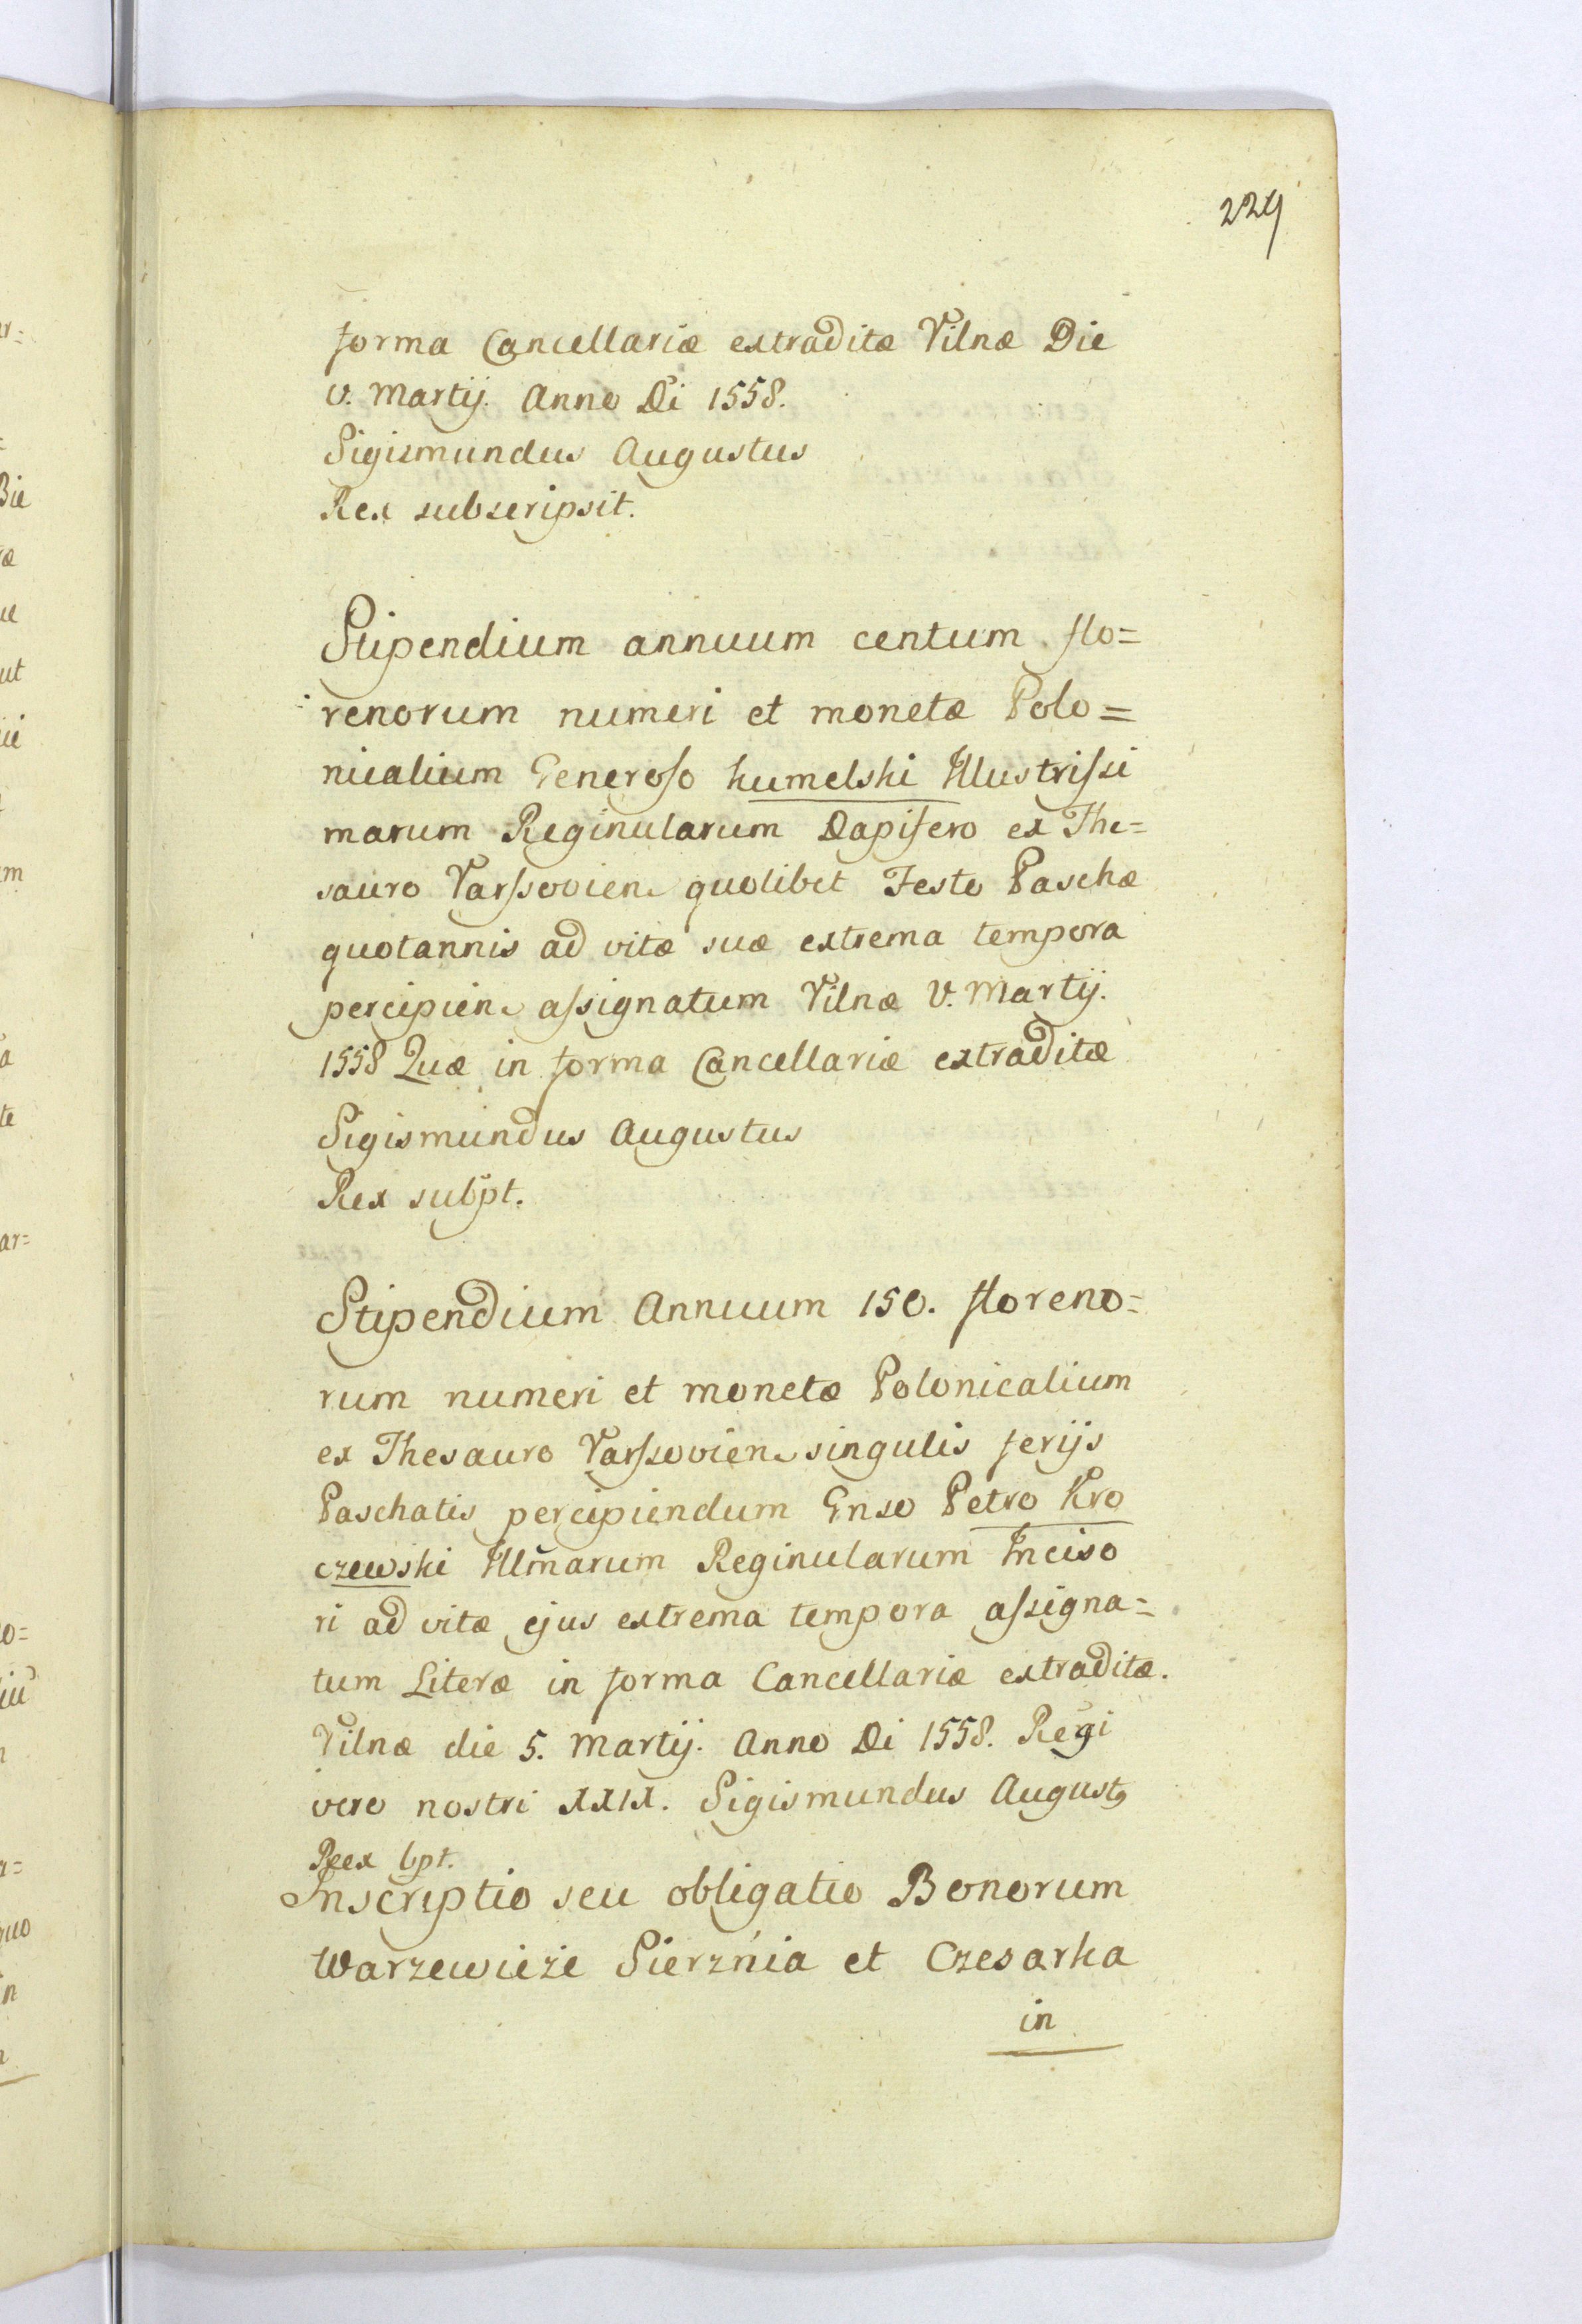 229
forma Cancellariæ extraditæ Vilnæ Die
v. Martij. Anno Di 1558.
Sigismundus Augustus
Rex subscripsit.
Stipendium annuum centum flo=
renorum numeri et monetæ Polo=
nicalium Generoso humelski Illustrissi
marum Reginularum Dapifero ex The=
sauro Varssovien. quolibet Festo Paschæ
quotannis ad vitæ suæ extrema tempora
percipien. assignatum Vilnæ V. Martij.
1558 Quæ in forma Cancellariæ extraditæ
Sigismundus Augustus
Rex subpt.
Stipendium Annuum 150. floreno=
rum numeri et monetæ Polonicalium
ex Thesauro Varssovien. singulis ferijs
Paschatis percipiendum Gnso Petro Kro
czewski Illmarum Reginularum Inciso
ri ad vitæ ejus extrema tempora assigna=
tum Literæ in forma Cancellariæ extraditæ.
Vilnæ die 5. Martij. Anno Di 1558. Regi
vero nostri XXIX. Sigismundus August9
Reex bpt.
Inscriptio seu obligatio Bonorum
Warzewieże Sierznia et Czesarka
in